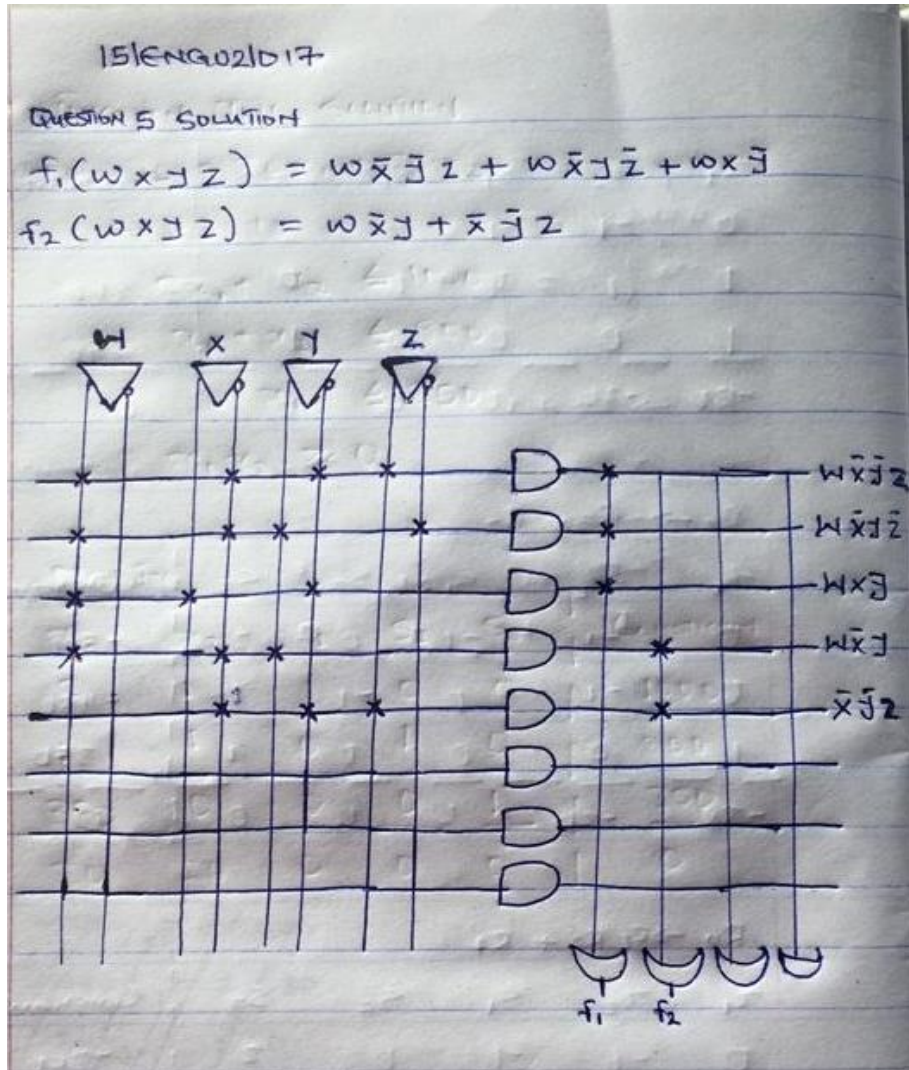 15/ENG02/017
QUESTION 5 SOLUTION
f₁(w x y z) = w x̄ ȳ z + w x̄ y z̄ + w x ȳ
f₂(w x y z) = w x̄ y + x̄ ȳ z
W X Y Z
w x̄ ȳ z
w x̄ y z̄
w x ȳ
w x̄ y
x̄ ȳ z
f₁ f₂